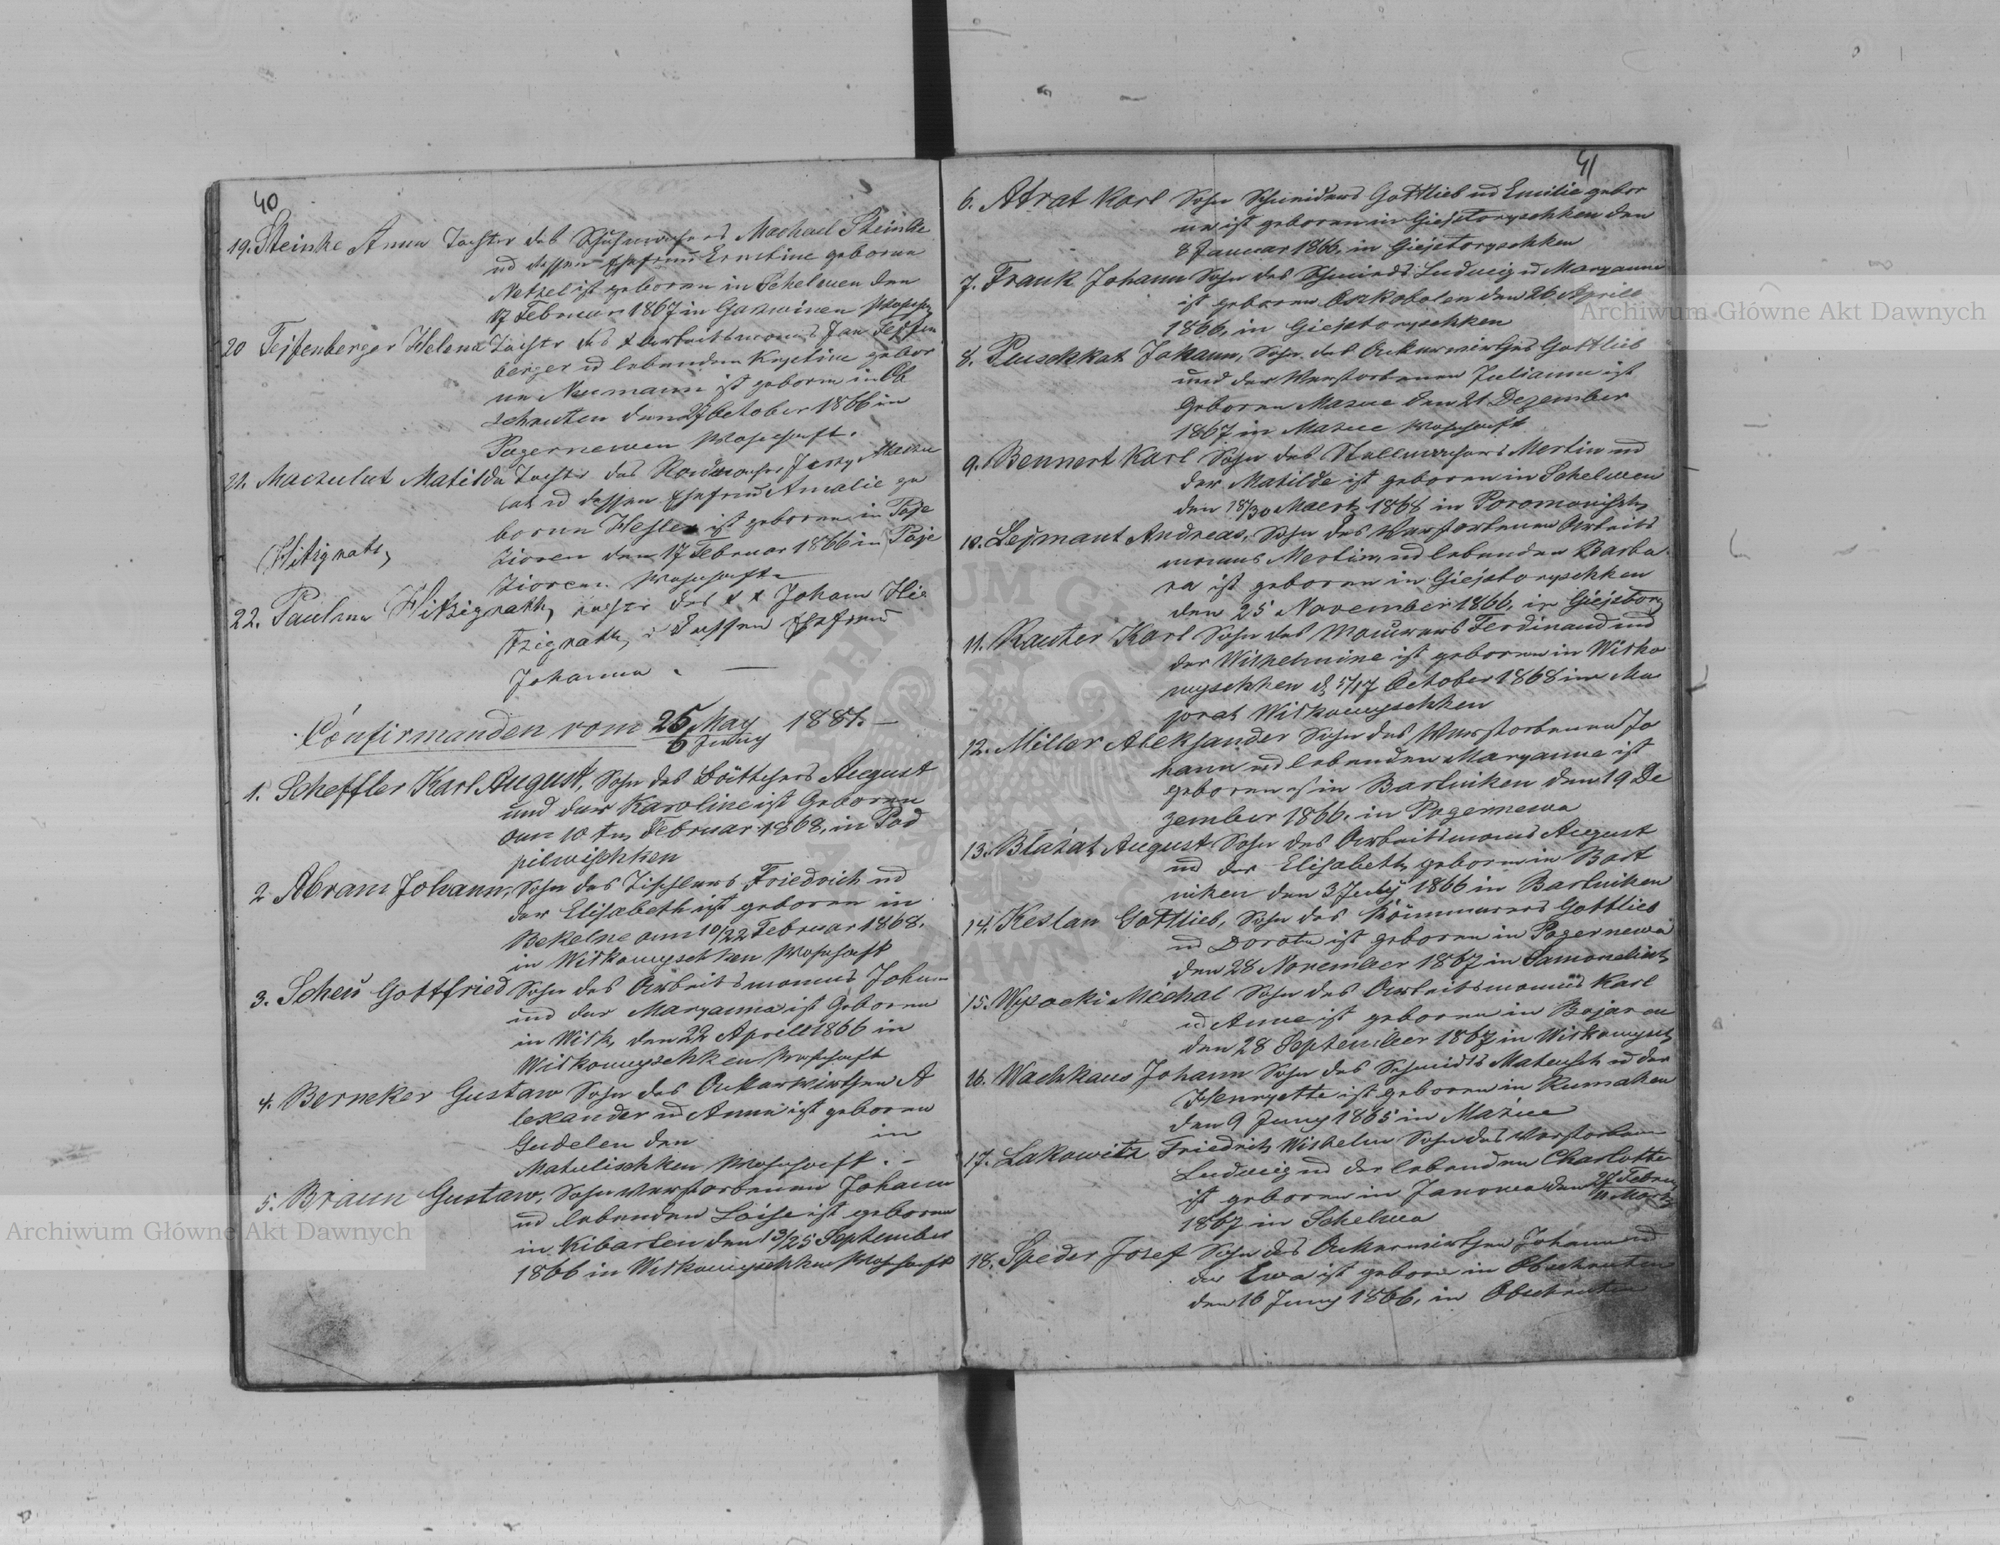 40
19. Steinke Anna Tochter des Schuhmachers Machael Steinke
ud dessen Ehefrau Ernstine geborne
Netzel ist geboren in Schelwen den
17 Februar 1867 in Gasswinen wohnh
20 Teifenberger Helena Tochter des + Arbeitsmanns Jan Teiffen
berger ud lebenden Krystine gebor
ne Neumann ist geboren in Ob
schruten den 27 October 1866 in
Pagernewen wohnhaft.
21. Maczulat Matilda Tochter des Jerzy Maczu
lat ud dessen Ehefrau Amalie ge
borne Hesler ist geboren in Paje
zioren den 17 Februar 1866 in Paje
zioren wohnhaft
(Hitzigrath)
22. Paulina Hitzigrath, Tochter des Johann Hit
tzigrath, dessen Ehefrau
Johanna.
Confirmanden vom 25 May / 6 Juny 188
1. Scheffler Karl August, Sohn des Böttchers August
und der Karoline ist Geboren
am 10 ten Februar 1868, in Pod
pilwischken
2 Abram Johann, Sohn des Tischlers Friedrich ud
der Elisabeth ist geboren in
Bekelne am 10/22 Februar 1868.
in Wilkowyschken wohnhaft
3. Scheu Gottfried Sohn des Arbeitsmanns Johann
und der Maryanna ist Geboren
in Wilk, den 22 Aprill 1866 in
Wilkowyschken wohnhaft
4. Berneker Gustaw Sohn des Ackerwirthen A
lexander ud Anna ist geboren
Gudelen den in
Matulischken wohnhaft.
5. Braun Gustaw, Sohn verstorbenen Johann
ud lebenden Loise ist geboren
in Kibarten den 13/25 September
1866 in Wilkowyschken wohnhaft
41
6. Atrat Karl Sohn Schneiders Gottlieb ud Emilie gebor
ne ist geboren in Giejstoryschken den
8 Januar 1866, in Giejstoryschken
7. Frank Johann Sohn des Schmieds Ludwig ud Maryanne
ist geboren Oszkobolen den 26 Aprill
1866, in Giejstoryschken
8. Puschkat Johann, Sohn des Ackerwirthes Gottlieb
und der Verstorbenen Julianne ist
Geboren Mazue den 21 Dezember
1867 in Mazue wohnhaft
9. Bennert Karl Sohn des Stellmachers Mertin ud
der Matilde ist geboren in Schelwen
den 18/30 Maertz 1868 in
10. Lejmant Andreas, Sohn des Verstorbenen Arbeits
manns Mertin, ud lebenden Barba
ra ist geboren in Giejstoryschken
den 25 November 1866, in Giejstory
11. Rauter Karl Sohn des Maurers Ferdinand und
der Wilhelmine ist geboren in Wilko
wyschken d 5/17 October 1868 im Ma
jorat Wilkowyschken
12. Miller Aleksander Sohn des Verstorbenen Jo
hann ud lebenden Maryanne ist
geboren in Bartniken den 19 De
zember 1866, in Pagernewa
13. Blazat August Sohn des Arbeitsmanns August
ud der Elisabeth, geboren in Bart
niken den 3 July 1866 in Bartniken
14. Keslau Gottlieb, Sohn des Kämmerers Gottlieb
ud Dorota ist geboren in Pagernewa
den 28 November 1867 in
15. Wysocki Michal Sohn des Arbeitsmannes Karl
ud Anne ist geboren in Bojaren
den 28 September 1867 in Wilkowysch
16. Wachhaus Johann Sohn des Schmidts Mateusch ud der
Henryette ist geboren in Rumaken
den 9 Juny 1865 in Mazue
17. Lakowitz Friedrich Wilhelm Sohn des Verstorbenen
Ludwig ud der lebenden Charlotte
ist geboren in Janowa den 27 Febru / 11 Maertz
1867 in Schelwa
18. Speder Josef Sohn des Ackerwirthen Johann ud
der Ewa ist geboren in Obschruten
den 16 Juny 1866, in Obschruten
Archiwum Główne Akt Dawnych
Archiwum Główne Akt Dawnych